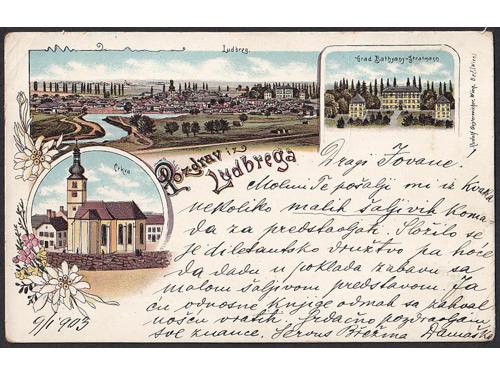 Ludbreg.
Grad Bathyany-Stratmann
Crkva
Pozdrav iz
Ludbrega
Dragi Jovane!
Molim Te pošalji mi iz
nekoliko malih šaljivih koma-
da za predstavljati. Složilo se
je diletantsko družtvo pa hoće
da dadu u poklada zabavu sa
malom šaljivom predstavom. Ja
ću odnosne knjige odmah sa zahval
nošću vratiti. Srdačno pozdravljam
sve znance. Servus
6/I 903